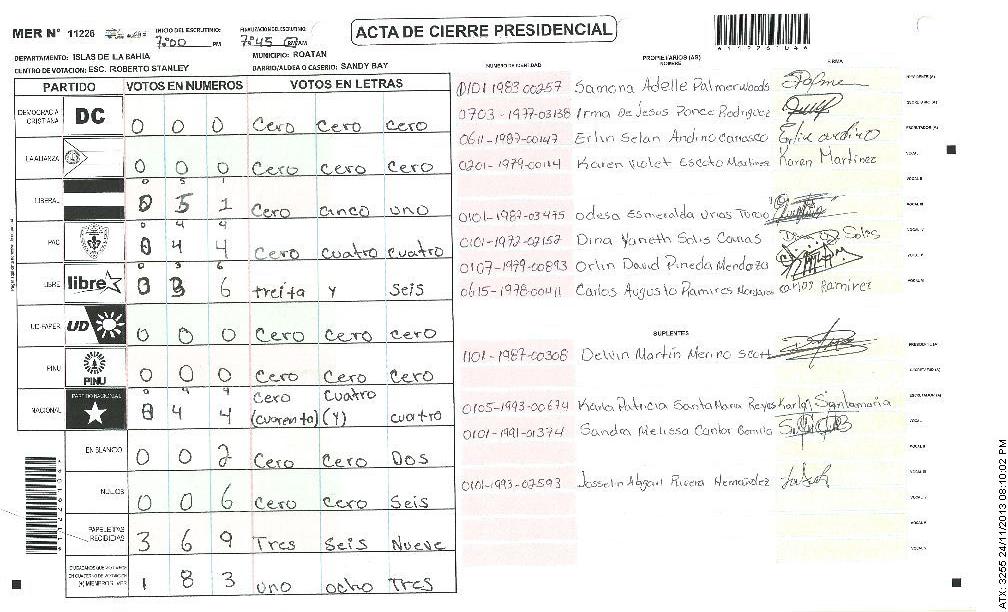 MER N° 11226 INICIO DEL ESCRUTINIO: 7:00 PM FINALIZACION DEL ESCRUTINIO: 7:45 PM ACTA DE CIERRE PRESIDENCIAL
DEPARTAMENTO: ISLAS DE LA BAHIA MUNICIPIO: ROATAN
CENTRO DE VOTACION: ESC. ROBERTO STANLEY BARRIO/ALDEA O CASERIO: SANDY BAY
PARTIDO VOTOS EN NUMEROS VOTOS EN LETRAS
DEMOCRACIA CRISTIANA DC 0 0 0 Cero Cero Cero
LA ALIANZA 0 0 0 Cero Cero Cero
0 5 1
LIBERAL 0 5 1 Cero cinco uno
0 4 4
PAC 0 4 4 Cero cuatro cuatro
0 3 6
LIBRE libre 0 3 6 treita y seis
UD-FAPER UD 0 0 0 Cero Cero Cero
PINU PINU 0 0 0 Cero Cero Cero
0 4 4 Cero cuatro
NACIONAL PARTIDO NACIONAL 0 4 4 (cuarenta) (Y) cuatro
EN BLANCO 0 0 2 Cero Cero Dos
NULOS 0 0 6 Cero Cero Seis
PAPELETAS RECIBIDAS 3 6 9 Tres Seis Nueve
CIUDADANOS QUE VOTARON EN CUADERNO DE VOTACION 1 8 3 uno ocho Tres
PROPIETARIOS (AS)
NUMERO DE IDENTIDAD NOMBRE FIRMA
0101 1983 00257 Samona Adelle Palmer Woods Palme PRESIDENTE (A)
0703-1977-03138 Irma De Jesus Ponce Rodriguez SECRETARIO (A)
0611-1987-00147 Erlin Selan Andino Carrasco ESCRUTADOR (A)
0201-1979-00114 Karen Violet Escoto Martinez Karen Martinez VOCAL I
VOCAL II
0101-1987-03475 Odesa Esmeralda Urias Turcio VOCAL III
0101-1972-02152 Dina Yaneth Solis VOCAL IV
0107-1979-00893 Orlin David Pineda Mendoza VOCAL V
0615-1978-00411 Carlos Augusto Ramires Carlos Ramirez VOCAL VI
SUPLENTES
1101-1987-00308 Delvin Martin Merino Scott PRESIDENTE (A)
SECRETARIO (A)
0105-1993-00674 Karla Patricia Santa Maria Reyes Karla Santamaria ESCRUTADOR (A)
0101-1991-01374 Sandra Melissa Cantor VOCAL I
VOCAL II
0101-1993-02593 Josselin Abgail Rivera Hernandez VOCAL III
VOCAL IV
VOCAL V
VOCAL VI
ATX: 3255 24/11/2013 08:10:02 PM